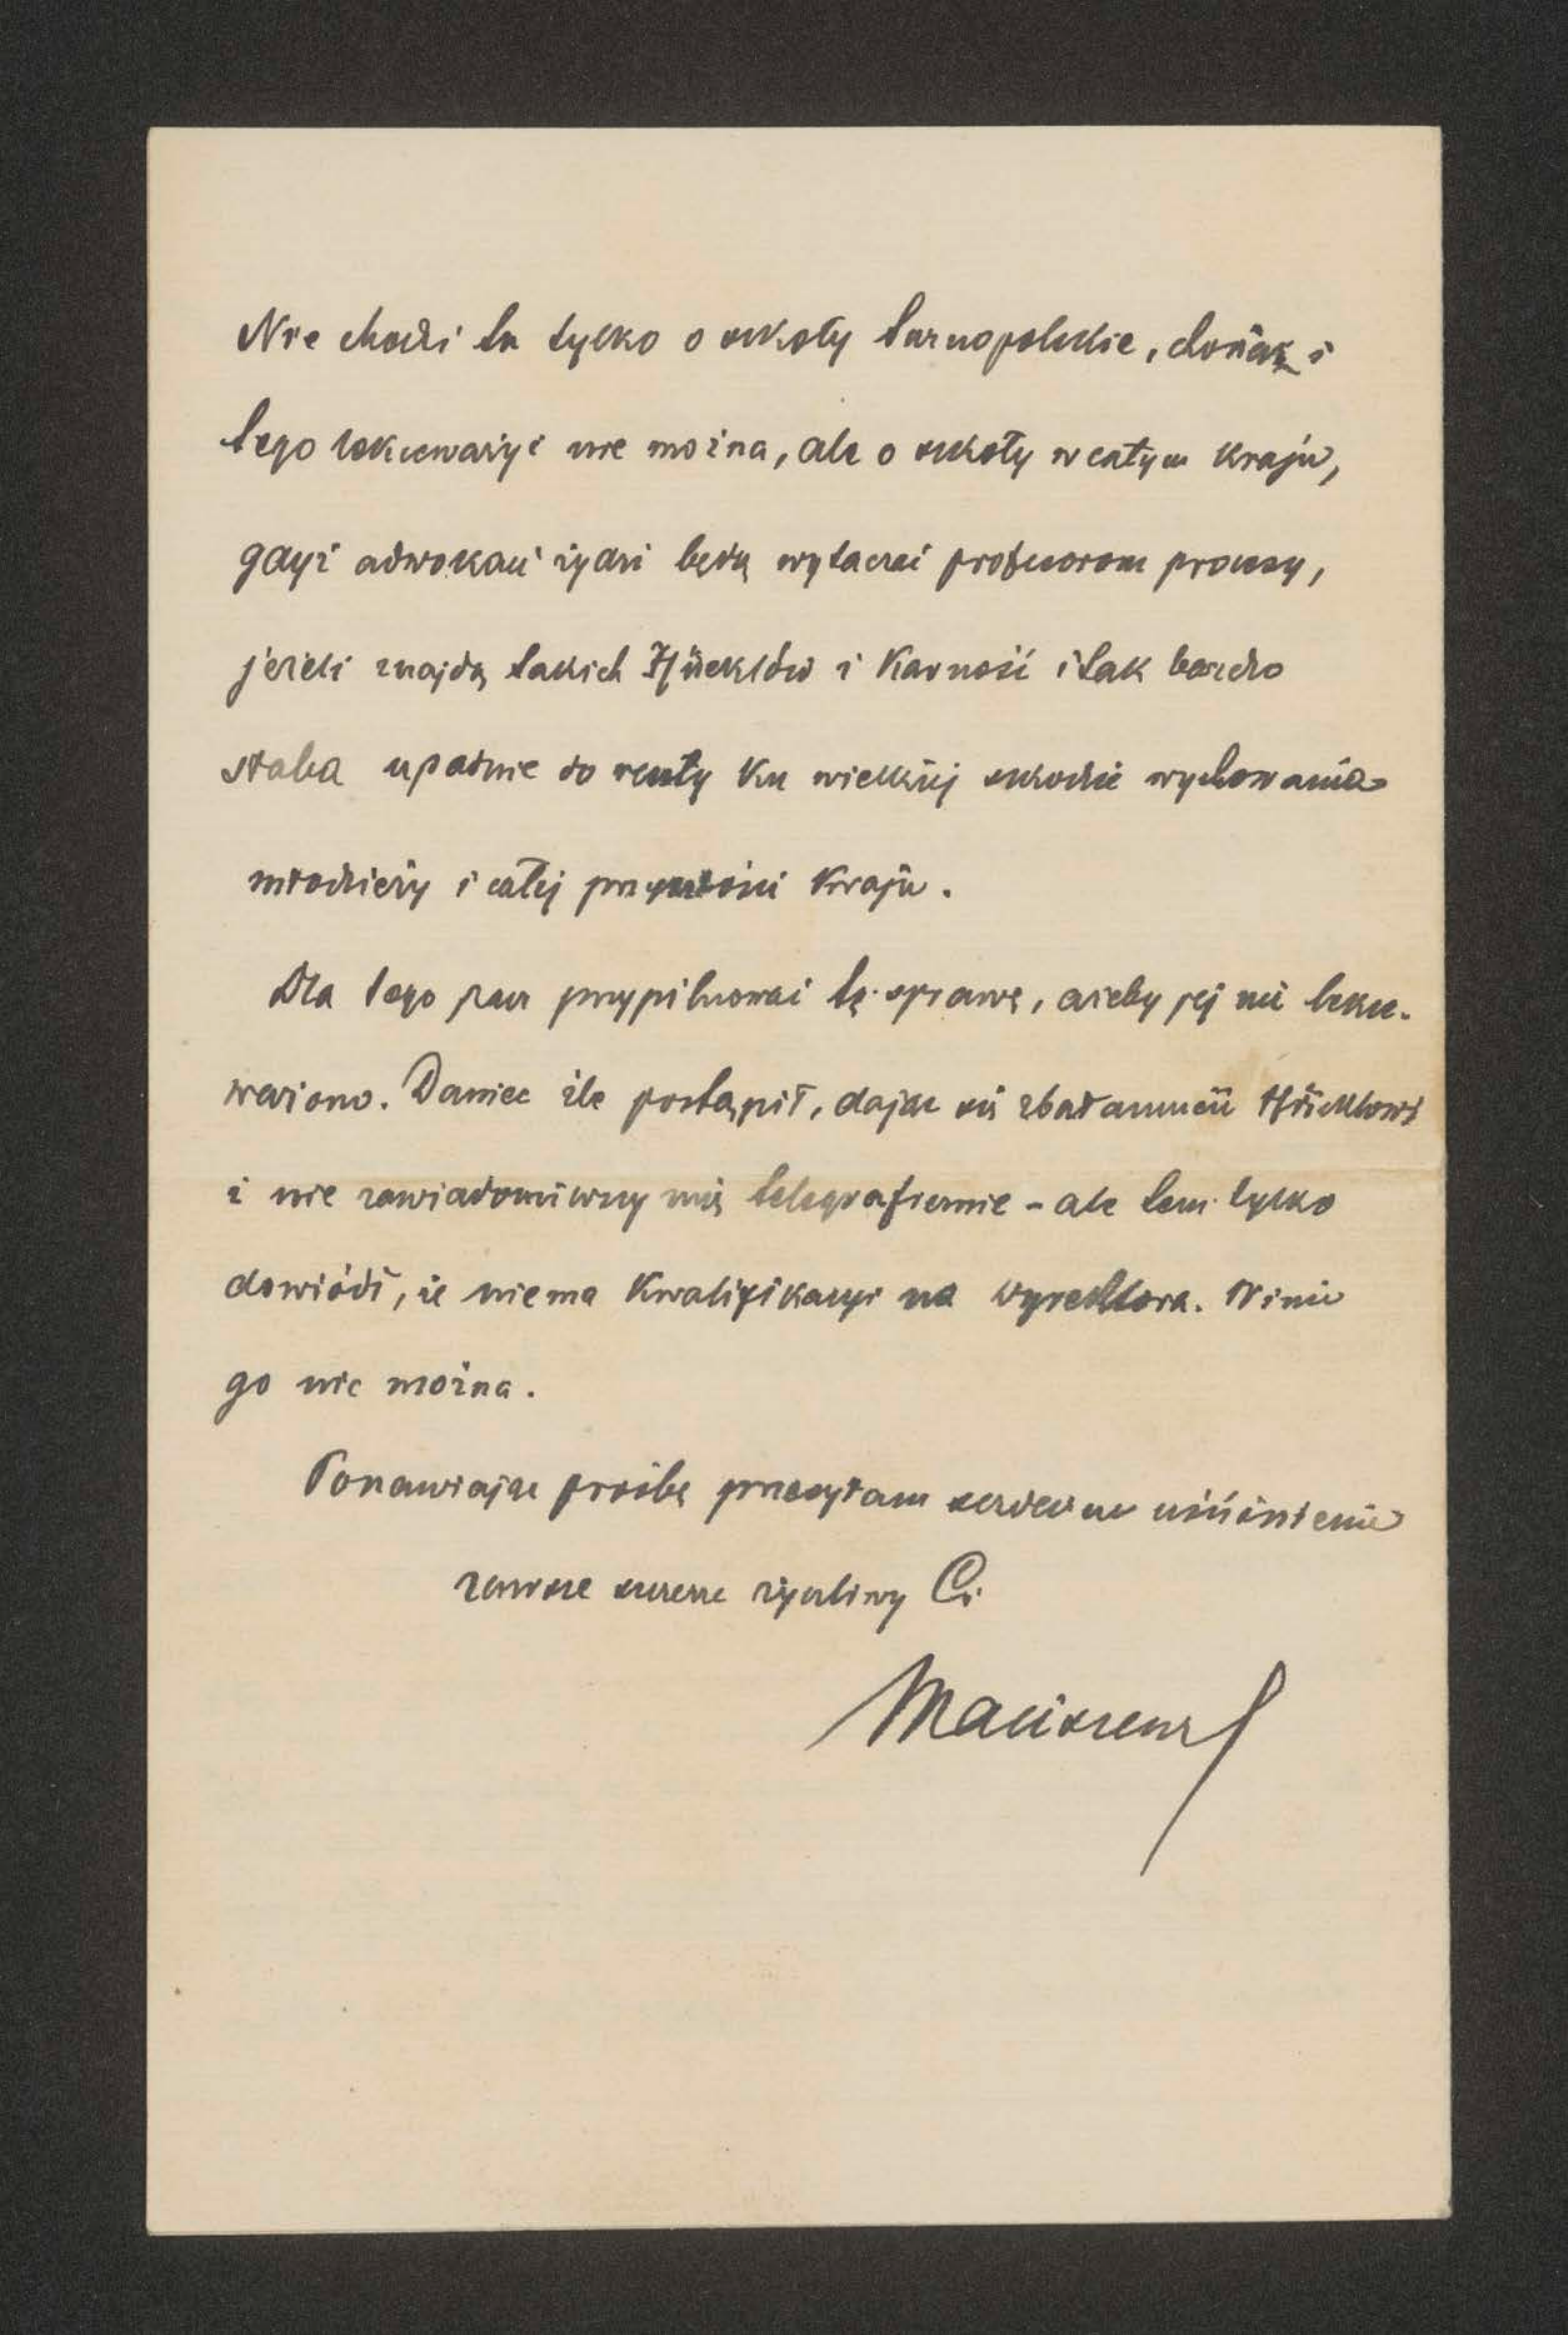 Nie chodzi tu tylko o szkoły tarnopolskie, chociaż i
tego lekceważyć nie można, ale o szkoły w całym kraju,
gdyż adwokaci żydzi będą wytaczać profesorom procesy,
jeżeli znajdą takich Hücklów i karność i tak bardzo
słaba upadnie do reszty ku wielkiej szkodzie wychowania
młodzieży i całej przyszłości kraju.
Dla tego racz przypilnować tę sprawę, ażeby jej nie lekce-
ważono. Daniec źle postąpił, dając się zbałamucić Hücklowi
i nie zawiadomiwszy mię telegraficznie - ale tem tylko
dowiódł, że niema kwalifikacyi na dyrektora. Winić
go nie można.
Ponawiając prośbę przesyłam serdeczne uściśnienie
zawsze szczerze życzliwy Ci